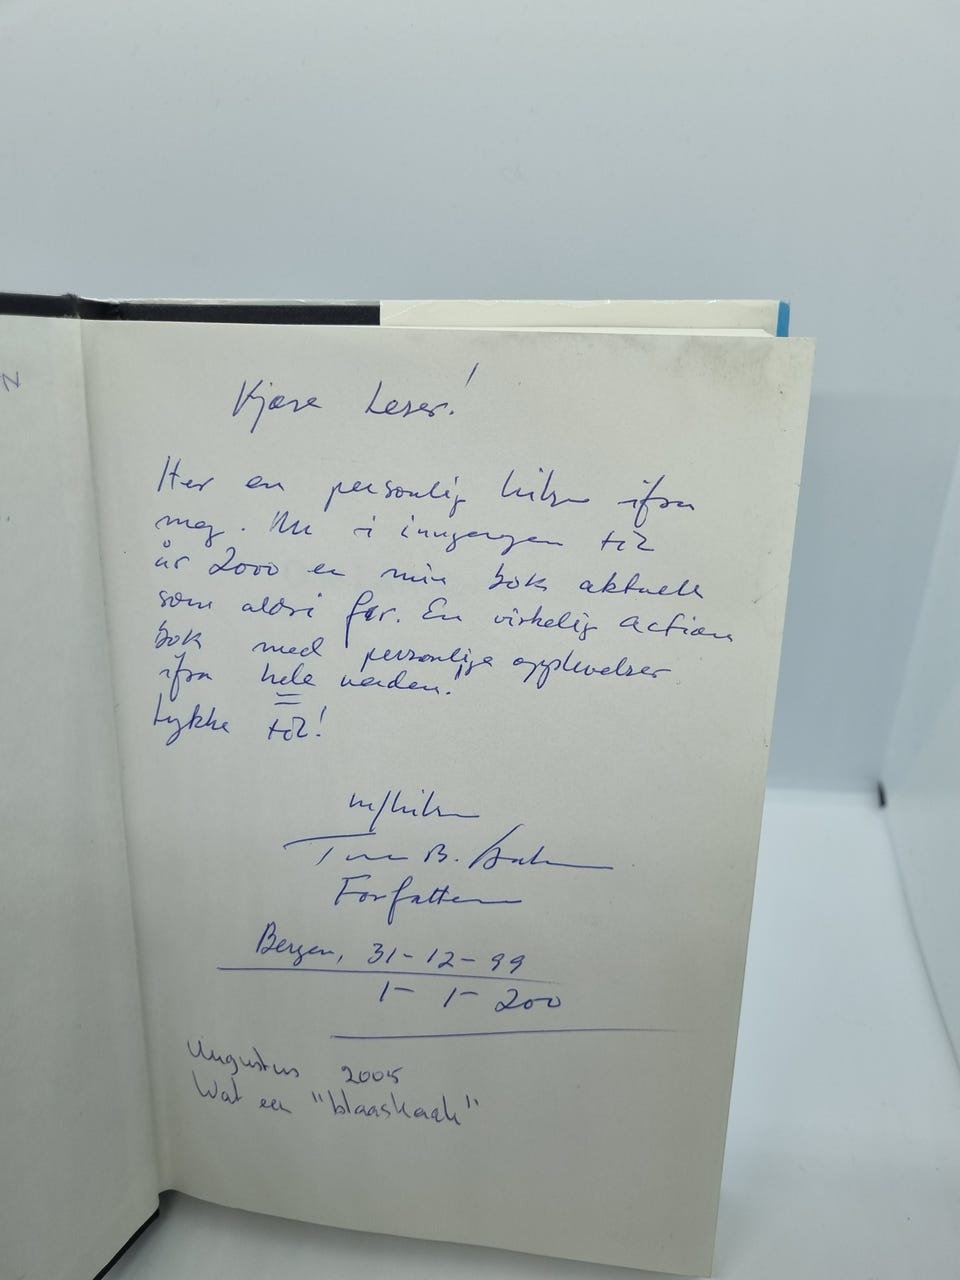 Kjære Leser!
Her en personlig hilsen ifra
meg. Nu i inngangen til
år 2000 er min bok aktuell
som aldri før. En virkelig action
bok med personlige opplevelser
ifra hele verden!
Lykke til!
m/hilsen
B.
Forfatteren
Bergen, 31-12-99
1-1-200
Augustus 2005
Wat een "blaaskaak"
N